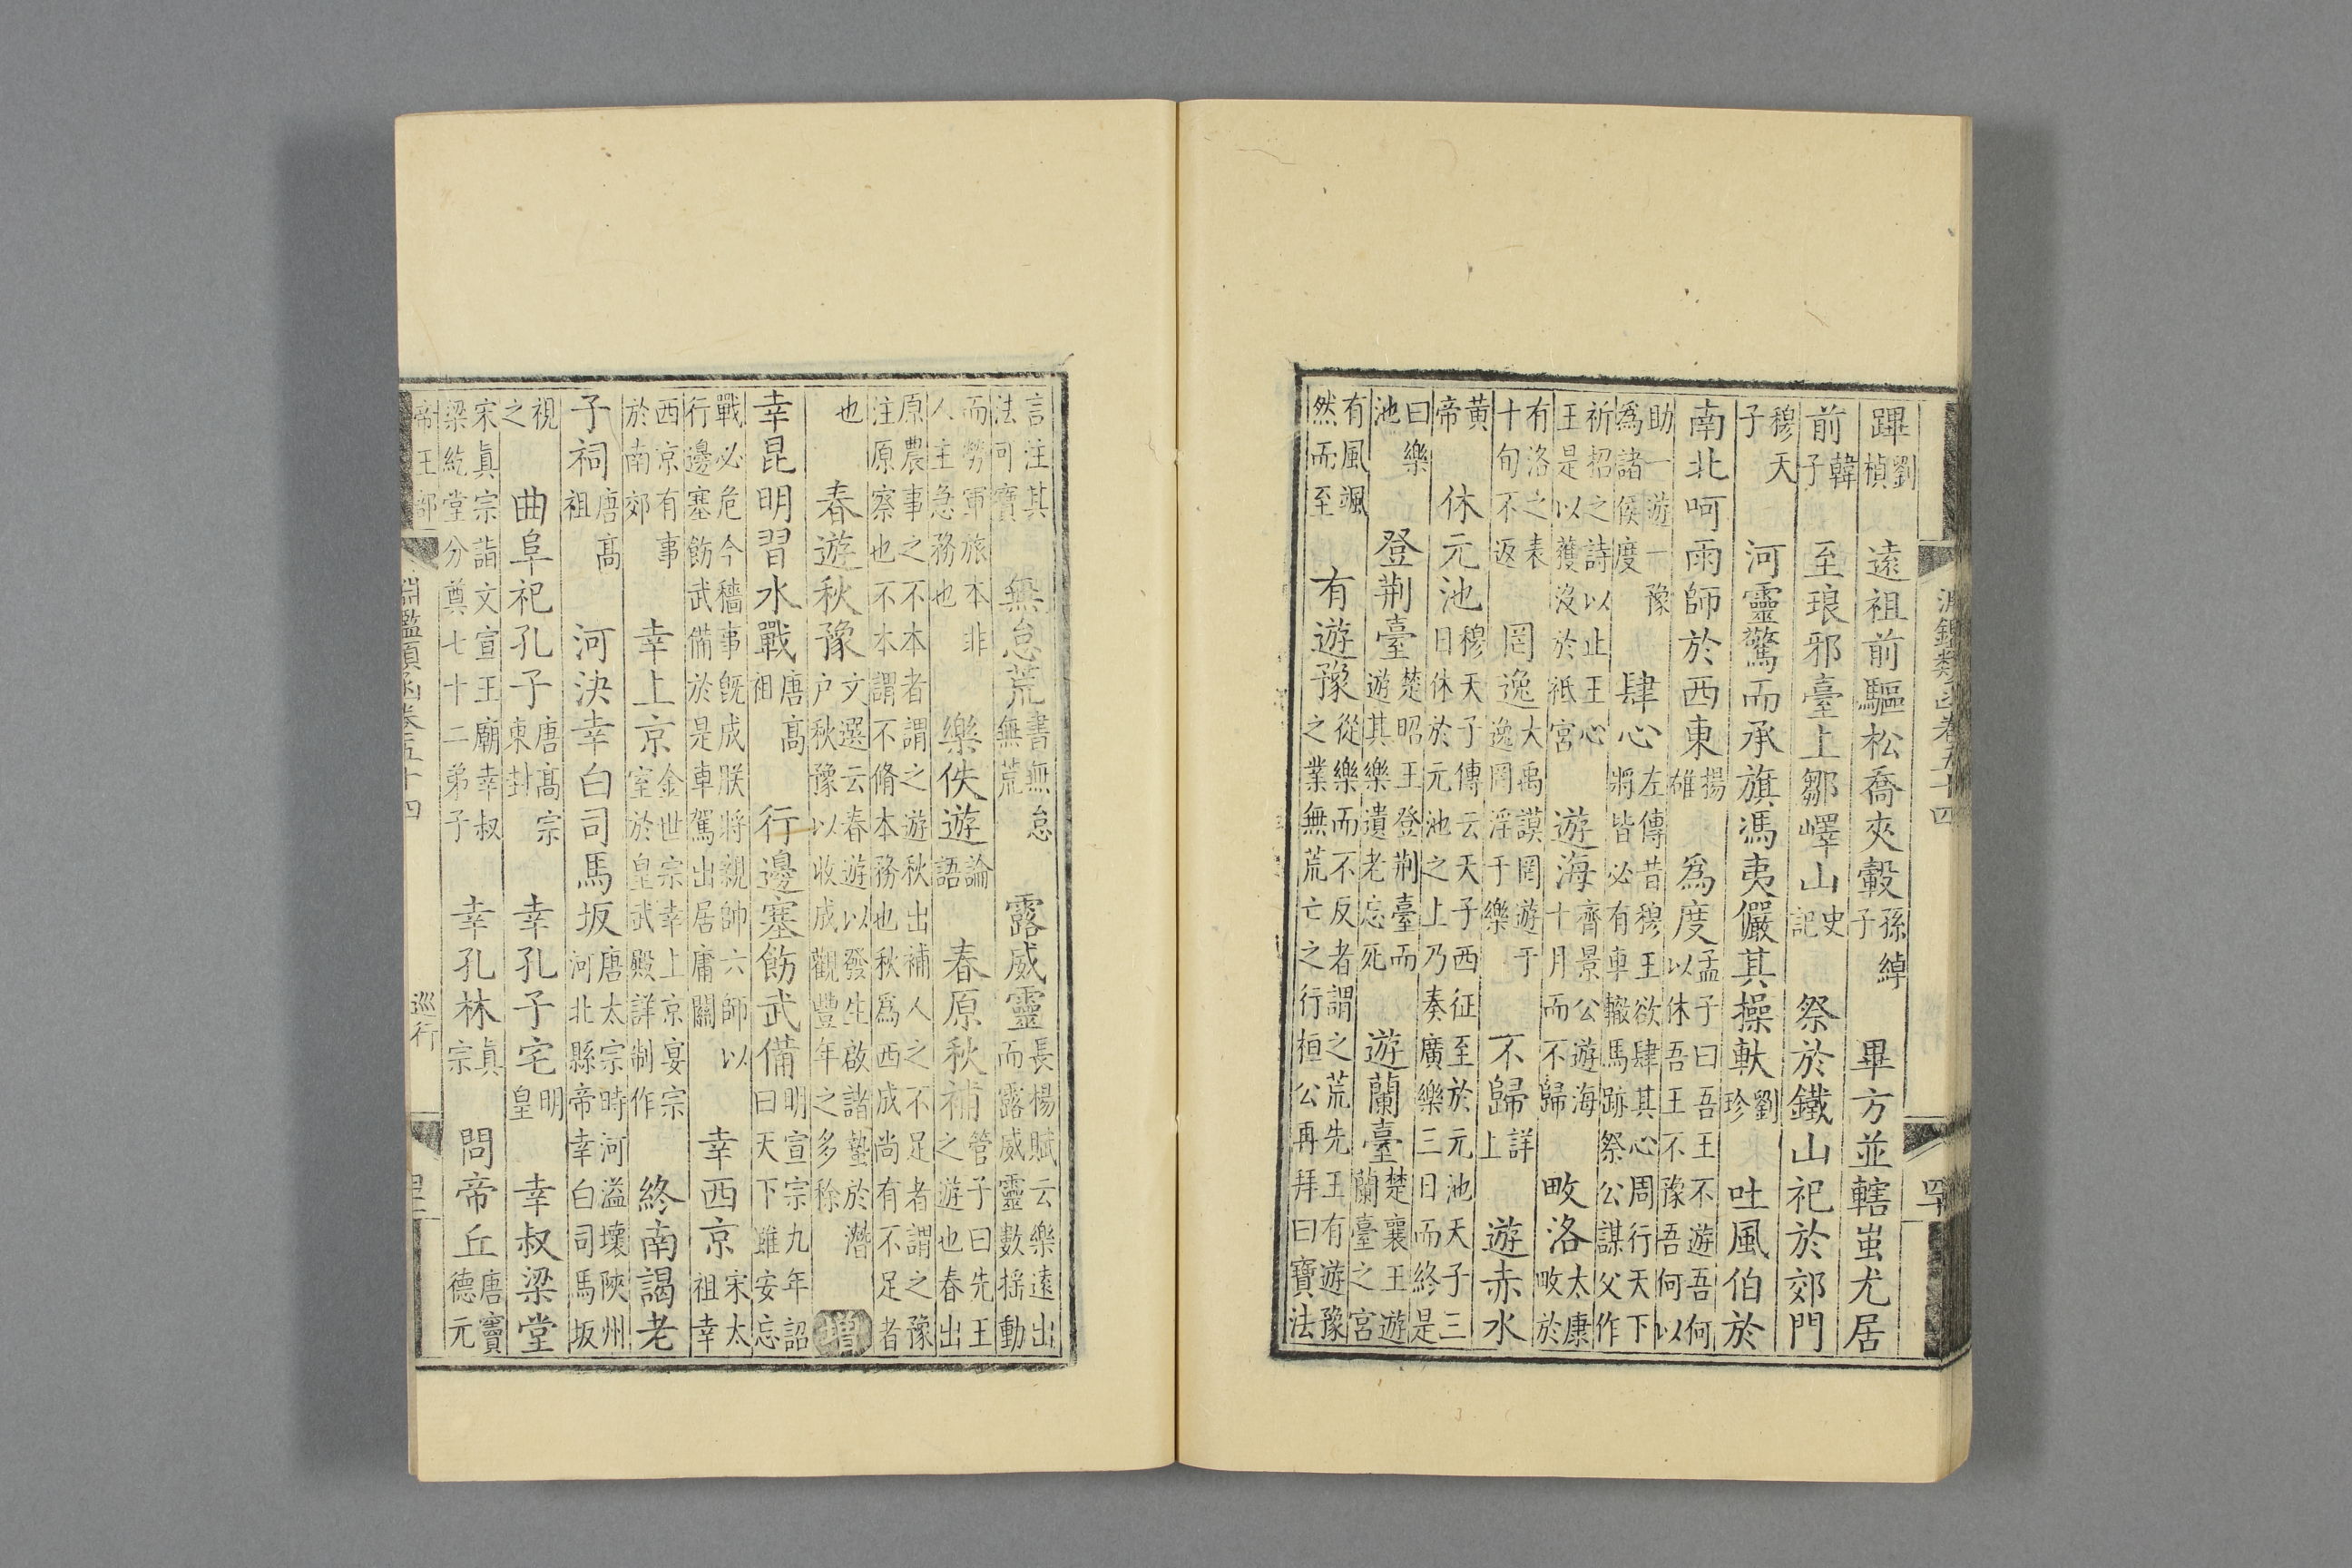 淵鑑類函卷五十四
蹕劉楨　遠祖前驅松喬夾轂孫綽子　畢方並轄蚩尤居
前韓子　至琅邪臺上鄒嶧山史記　祭於鐵山祀於郊門
穆天子　河靈驚而承旗馮夷儼其操軑劉珍　吐風伯於
南北呵雨師於西東揚雄　爲度孟子曰吾王不遊吾何以休吾王不豫吾何以
助一遊一豫爲諸侯度　肆心左傳昔穆王欲肆其心周行天下將皆必有車轍馬跡祭公謀父作
祈招之詩以止王心王是以獲沒於祗宮　遊海齊景公遊海十月而不歸　畋洛太康畋於
有洛之表十旬不返　罔逸大禹謨罔遊于逸罔淫于樂　不歸詳上　遊赤水
黃帝　休元池穆天子傳云天子西征至於元池天子三日休於元池之上乃奏廣樂三日而終是
曰樂池　登荆臺楚昭王登荆臺而遊其樂遺老忘死　遊蘭臺楚襄王遊蘭臺之宮
有風颯然而至　有遊豫從樂而不反者謂之荒先王有遊豫之業無荒亡之行桓公再拜曰寶法
言注其法可寶　無怠荒書無怠無荒　露威靈長楊賦云樂遠出而露威靈數搖動
而勞軍旅本非人主急務也　樂佚遊論語　春原秋補管子曰先王之遊也春出
原農事之不本者謂之遊秋出補人之不足者謂之豫注原察也不本謂不脩本務也秋爲西成尚有不足者
也　春遊秋豫文選云春遊以發生啟諸蟄於潛户秋豫以收成觀豐年之多稌　增
幸昆明習水戰唐高祖　行邊塞飭武備明宣宗九年詔曰天下雖安忘
戰必危今穡事既成朕將親帥六師以行邊塞飭武備於是車駕出居庸關　幸西京宋太祖幸
西京有事於南郊　幸上京金世宗幸上京宴宗室於皇武殿詳制作　終南謁老
子祠唐高祖　河決幸白司馬坂唐太宗時河溢壞陝州河北縣帝幸白司馬坂
視之　曲阜祀孔子唐高宗東封　幸孔子宅明皇　幸叔梁堂
宋真宗詣文宣王廟幸叔梁紇堂分奠七十二弟子　幸孔林真宗　問帝丘唐竇德元
帝王部　淵鑑類函卷五十四　巡行